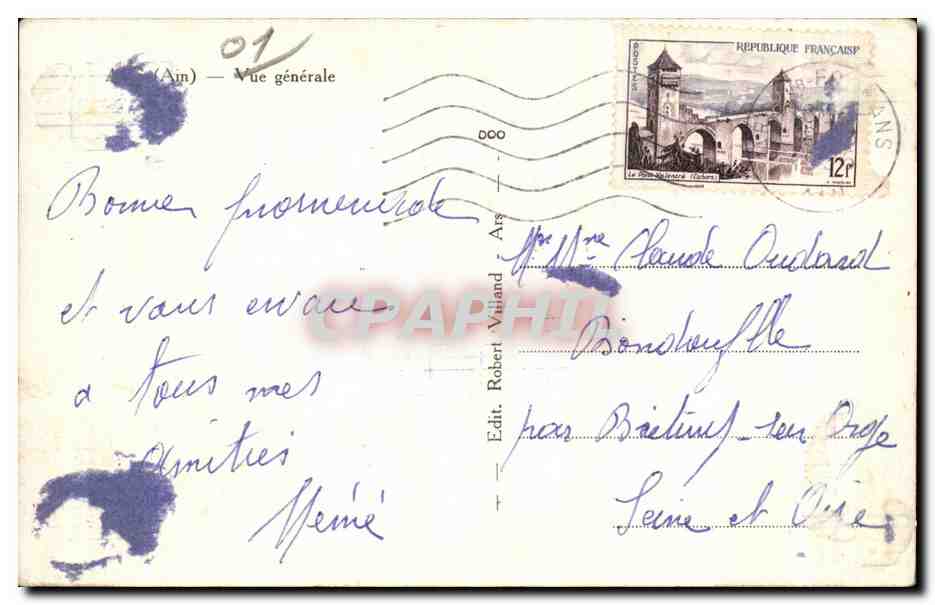 01
(Ain) — Vue générale
REPUBLIQUE FRANÇAISE
POSTES
Le Pont Valentré (Cahors)
12F
DOO
Bonne promenade
et vous envoie
à tous mes
amitiés
Mémé
Edit. Robert Villand Ars
Mr Mme Claude Oudard
Bondoufle
par Brétiny-sur Orge
Seine et Oise
CPAPHIL